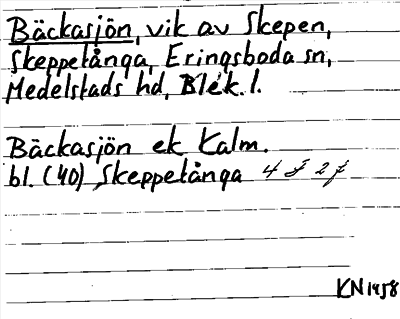 Bäckasjön, vik av Skepen,
Skeppetånga, Eringsboda sn,
Medelstads hd, Blek. l.
Bäckasjön ek Kalm.
bl. (40) Skeppetånga 4 J 2 f
KN 1958